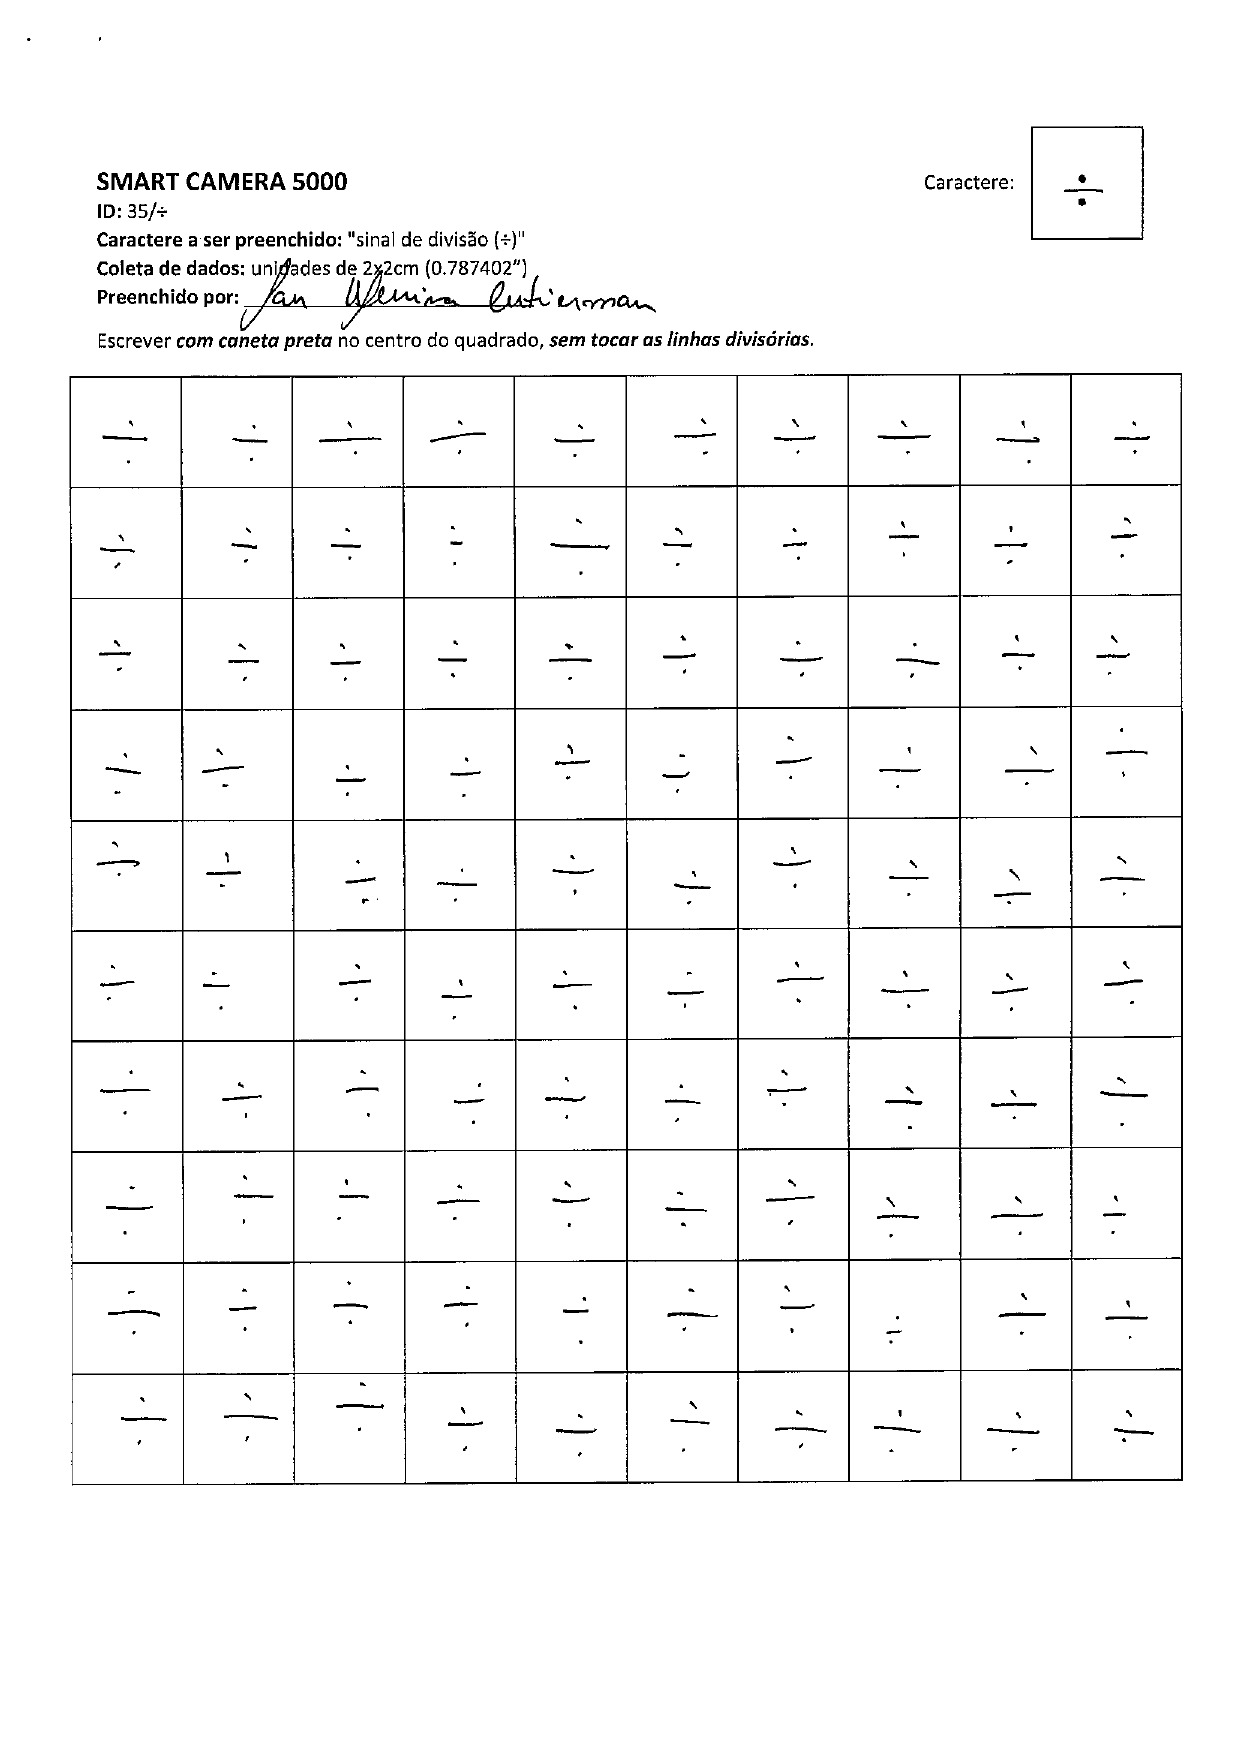 SMART CAMERA 5000
Caractere: ÷
ID: 35/÷
Caractere a ser preenchido: "sinal de divisão (÷)"
Coleta de dados: unidades de 2x2cm (0.787402")
Preenchido por: Jan
Escrever com caneta preta no centro do quadrado, sem tocar as linhas divisórias.
÷ ÷ ÷ ÷ ÷ ÷ ÷ ÷ ÷ ÷
÷ ÷ ÷ ÷ ÷ ÷ ÷ ÷ ÷ ÷
÷ ÷ ÷ ÷ ÷ ÷ ÷ ÷ ÷ ÷
÷ ÷ ÷ ÷ ÷ ÷ ÷ ÷ ÷ ÷
÷ ÷ ÷ ÷ ÷ ÷ ÷ ÷ ÷ ÷
÷ ÷ ÷ ÷ ÷ ÷ ÷ ÷ ÷ ÷
÷ ÷ ÷ ÷ ÷ ÷ ÷ ÷ ÷ ÷
÷ ÷ ÷ ÷ ÷ ÷ ÷ ÷ ÷ ÷
÷ ÷ ÷ ÷ ÷ ÷ ÷ ÷ ÷ ÷
÷ ÷ ÷ ÷ ÷ ÷ ÷ ÷ ÷ ÷